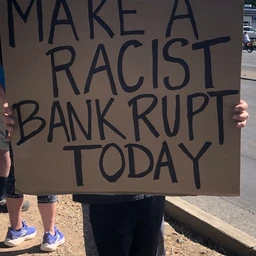 MAKE A
RACIST
BANKRUPT
TODAY